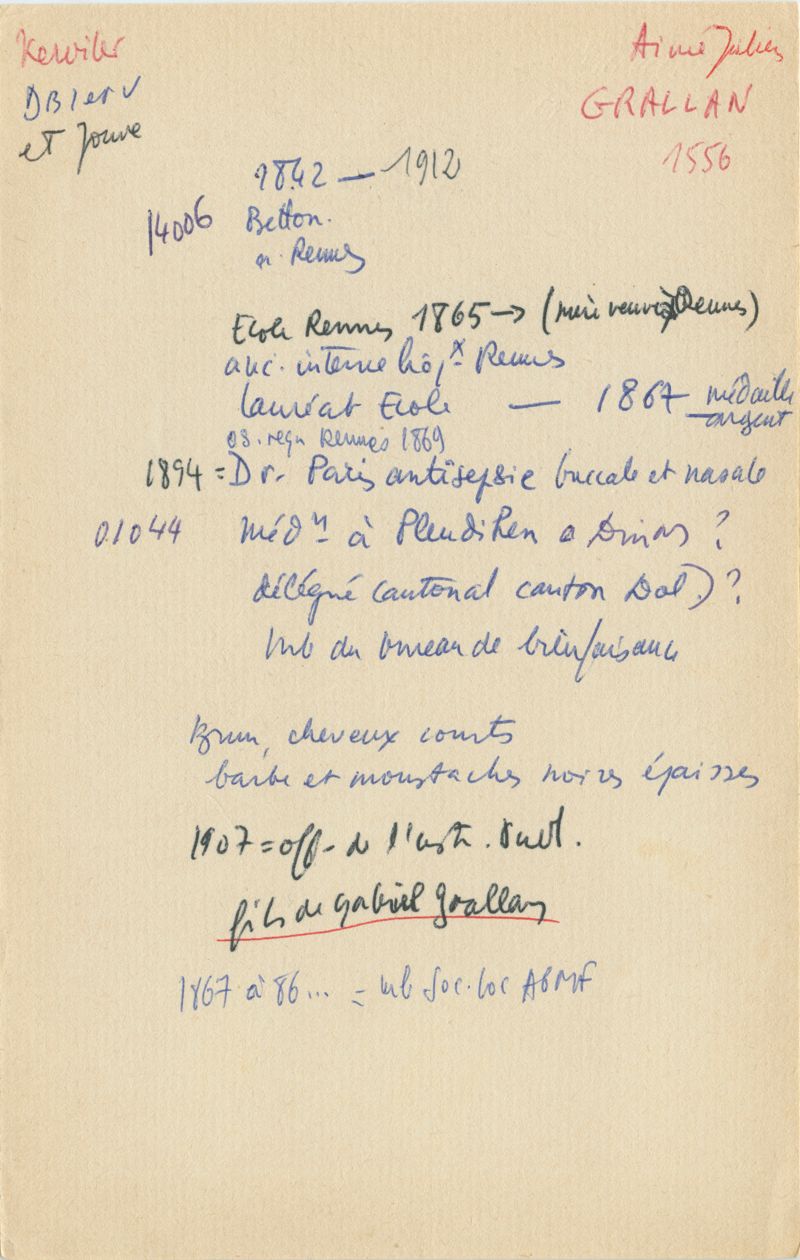 Kerviler
Aimé Julien
DB I et V
GRALLAN
et Jouve
1556
1842 — 1912
14006
Betton.
n. Rennes
Ecole Rennes 1865 → (mère veuve à Rennes)
anc. interne hôpx Rennes
lauréat Ecole — 1867 médaille
argent
Rennes 1869
1894 = Dr. Paris antisepsie buccale et nasale
01044 Médn à Pleudihen a Dinan ?
délégué cantonal canton Dol) ?
mb du bureau de bienfaisance
Brun, cheveux courts
barbe et moustaches noires épaisses
1907 = off. de l'instr. Publ.
fils de Gabriel Grallan
1867 à 86... = mb Soc. loc AGMF